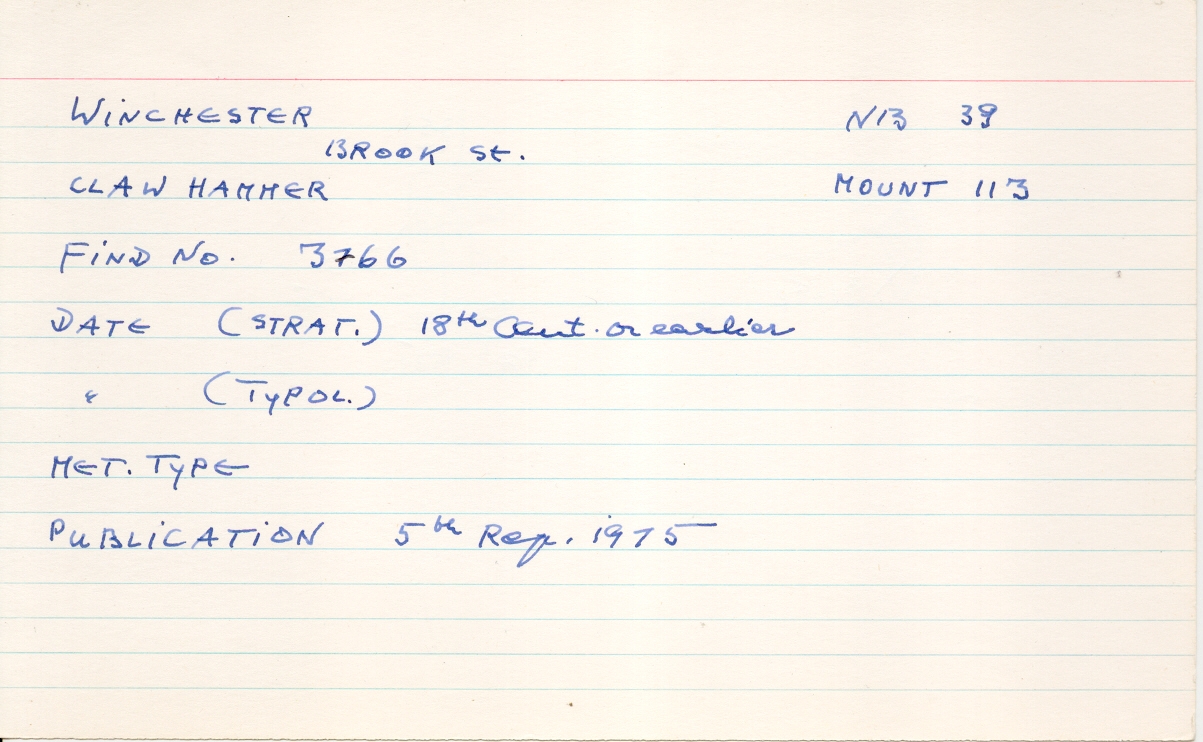 WINCHESTER N13 39
BROOK St.
CLAW HAMMER MOUNT 113
FIND No. 3766
DATE (STRAT.) 18th Cent. or earlier
" (TYPOL.)
MET. TYPE
PUBLICATION 5th Rep. 1975